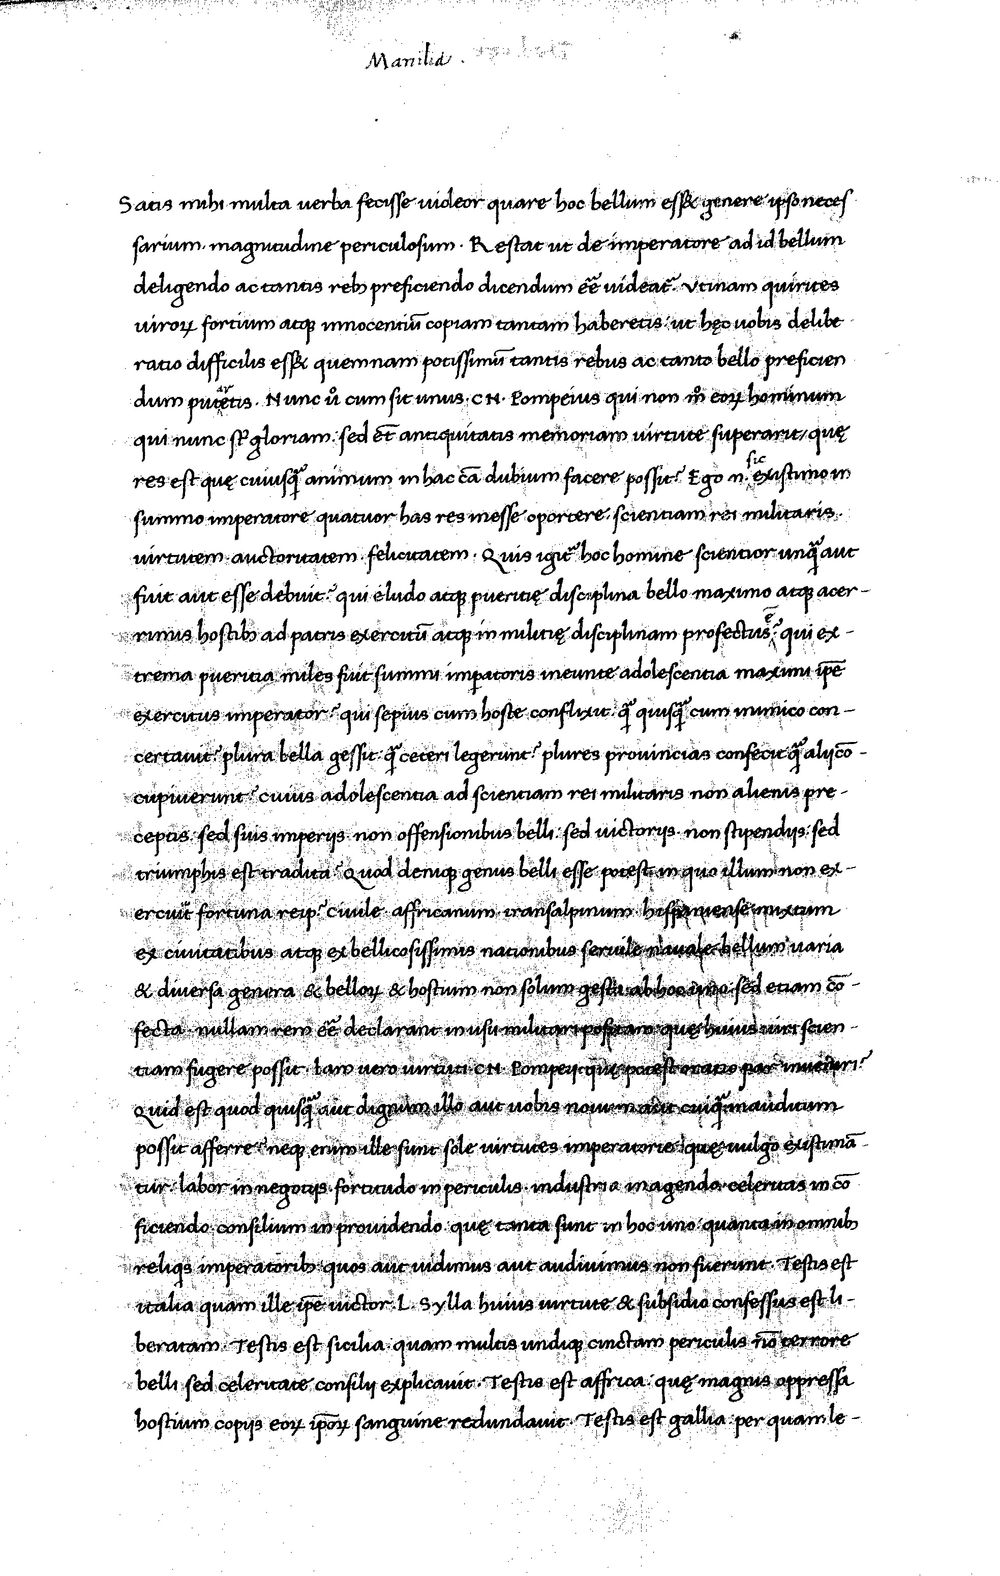 Manilia.
Satis mihi multa uerba fecisse uideor quare hoc bellum ess& genere ipso neces
sarium. magnitudine periculosum. Restat ut de imperatore ad id bellum
deligendo ac tantis reb; preficiendo dicendum eē uideat᷑. Vtinam quirites
uiroꝝ fortium atqꝫ innocentiū copiam tantam haberetis: ut hęc uobis delibe
ratio difficilis ess& quemnam potissimū tantis rebus ac tanto bello preficien
dum putaretis. Nunc u͛o cum sit unus. CN. Pompeius qui non m̊ eoꝝ hominum
qui nunc s̄t gloriam: sed et̄ antiquitatis memoriam uirtute superarit, quę
res est quę cuiusqꝫ animum in hac cā dubium facere possit? Ego n. sic existimo in
summo imperatore quatuor has res inesse oportere. scientiam rei militaris.
uirtutem. auctoritatem. felicitatem. Quis igit᷑ hoc homine scientior unqꝫ aut
fuit aut esse debuit? qui e ludo atqꝫ pueritię disciplina bello maximo atqꝫ acer-
rimis hostib; ad patris exercitū atqꝫ in militię disciplinam profectus ē? qui ex-
trema pueritia miles fuit summi imꝑatoris ineunte adolescentia maximi ip̄e
exercitus imperator? qui sepius cum hoste conflixit: qꝫ quisqꝫ cum inimico con-
certauit? plura bella gessit: qꝫ ceteri legerunt? plures prouincias confecit qꝫ alij cō-
cupiuerunt? cuius adolescentia ad scientiam rei militaris non alienis pre-
ceptis: sed suis imperijs. non offensionibus belli: sed uictorijs. non stipendijs: sed
triumphis est tradita? Quod deniqꝫ genus belli esse potest: in quo illum non ex-
ercuit fortuna reip.? ciuile. affricanum. transalpinum. hispaniense mixtum
ex ciuitatibus atqꝫ ex bellicosissimis nationibus seruile nauale bellum uaria
& diuersa genera & belloꝝ & hostium non solum gesta ab hoc uno: sed etiam cō-
fecta. nullam rem eē declarant in usu militari positam quę huius uiri scien-
tiam fugere possit. Iam uero uirtuti CN. Pompeij: quę potest oratio par inueniri?
Quid est quod quisqꝫ aut dignum illo aut uobis nouum aut cuiqꝫ inauditum
possit afferre? neqꝫ enim ille sunt sole uirtutes imperatorie: que uulgo existimā-
tur: labor in negotijs fortitudo in periculis. industria in agendo. celeritas in cō
ficiendo. consilium in prouidendo. quę tanta sunt in hoc uno: quanta in omnib;
reliqs imperatorib; quos aut uidimus aut audiuimus non fuerunt. Testis est
italia quam ille ip̄e uictor. L. Sylla huius uirtute & subsidio confessus est li-
beratam. Testis est sicilia. quam multis undiqꝫ cinctam periculis nō terrore
belli sed celeritate consilij explicauit. Testis est affrica: quę magnis oppressa
hostium copijs eoꝝ ip̄oꝝ sanguine redundauit. Testis est gallia: per quam le-